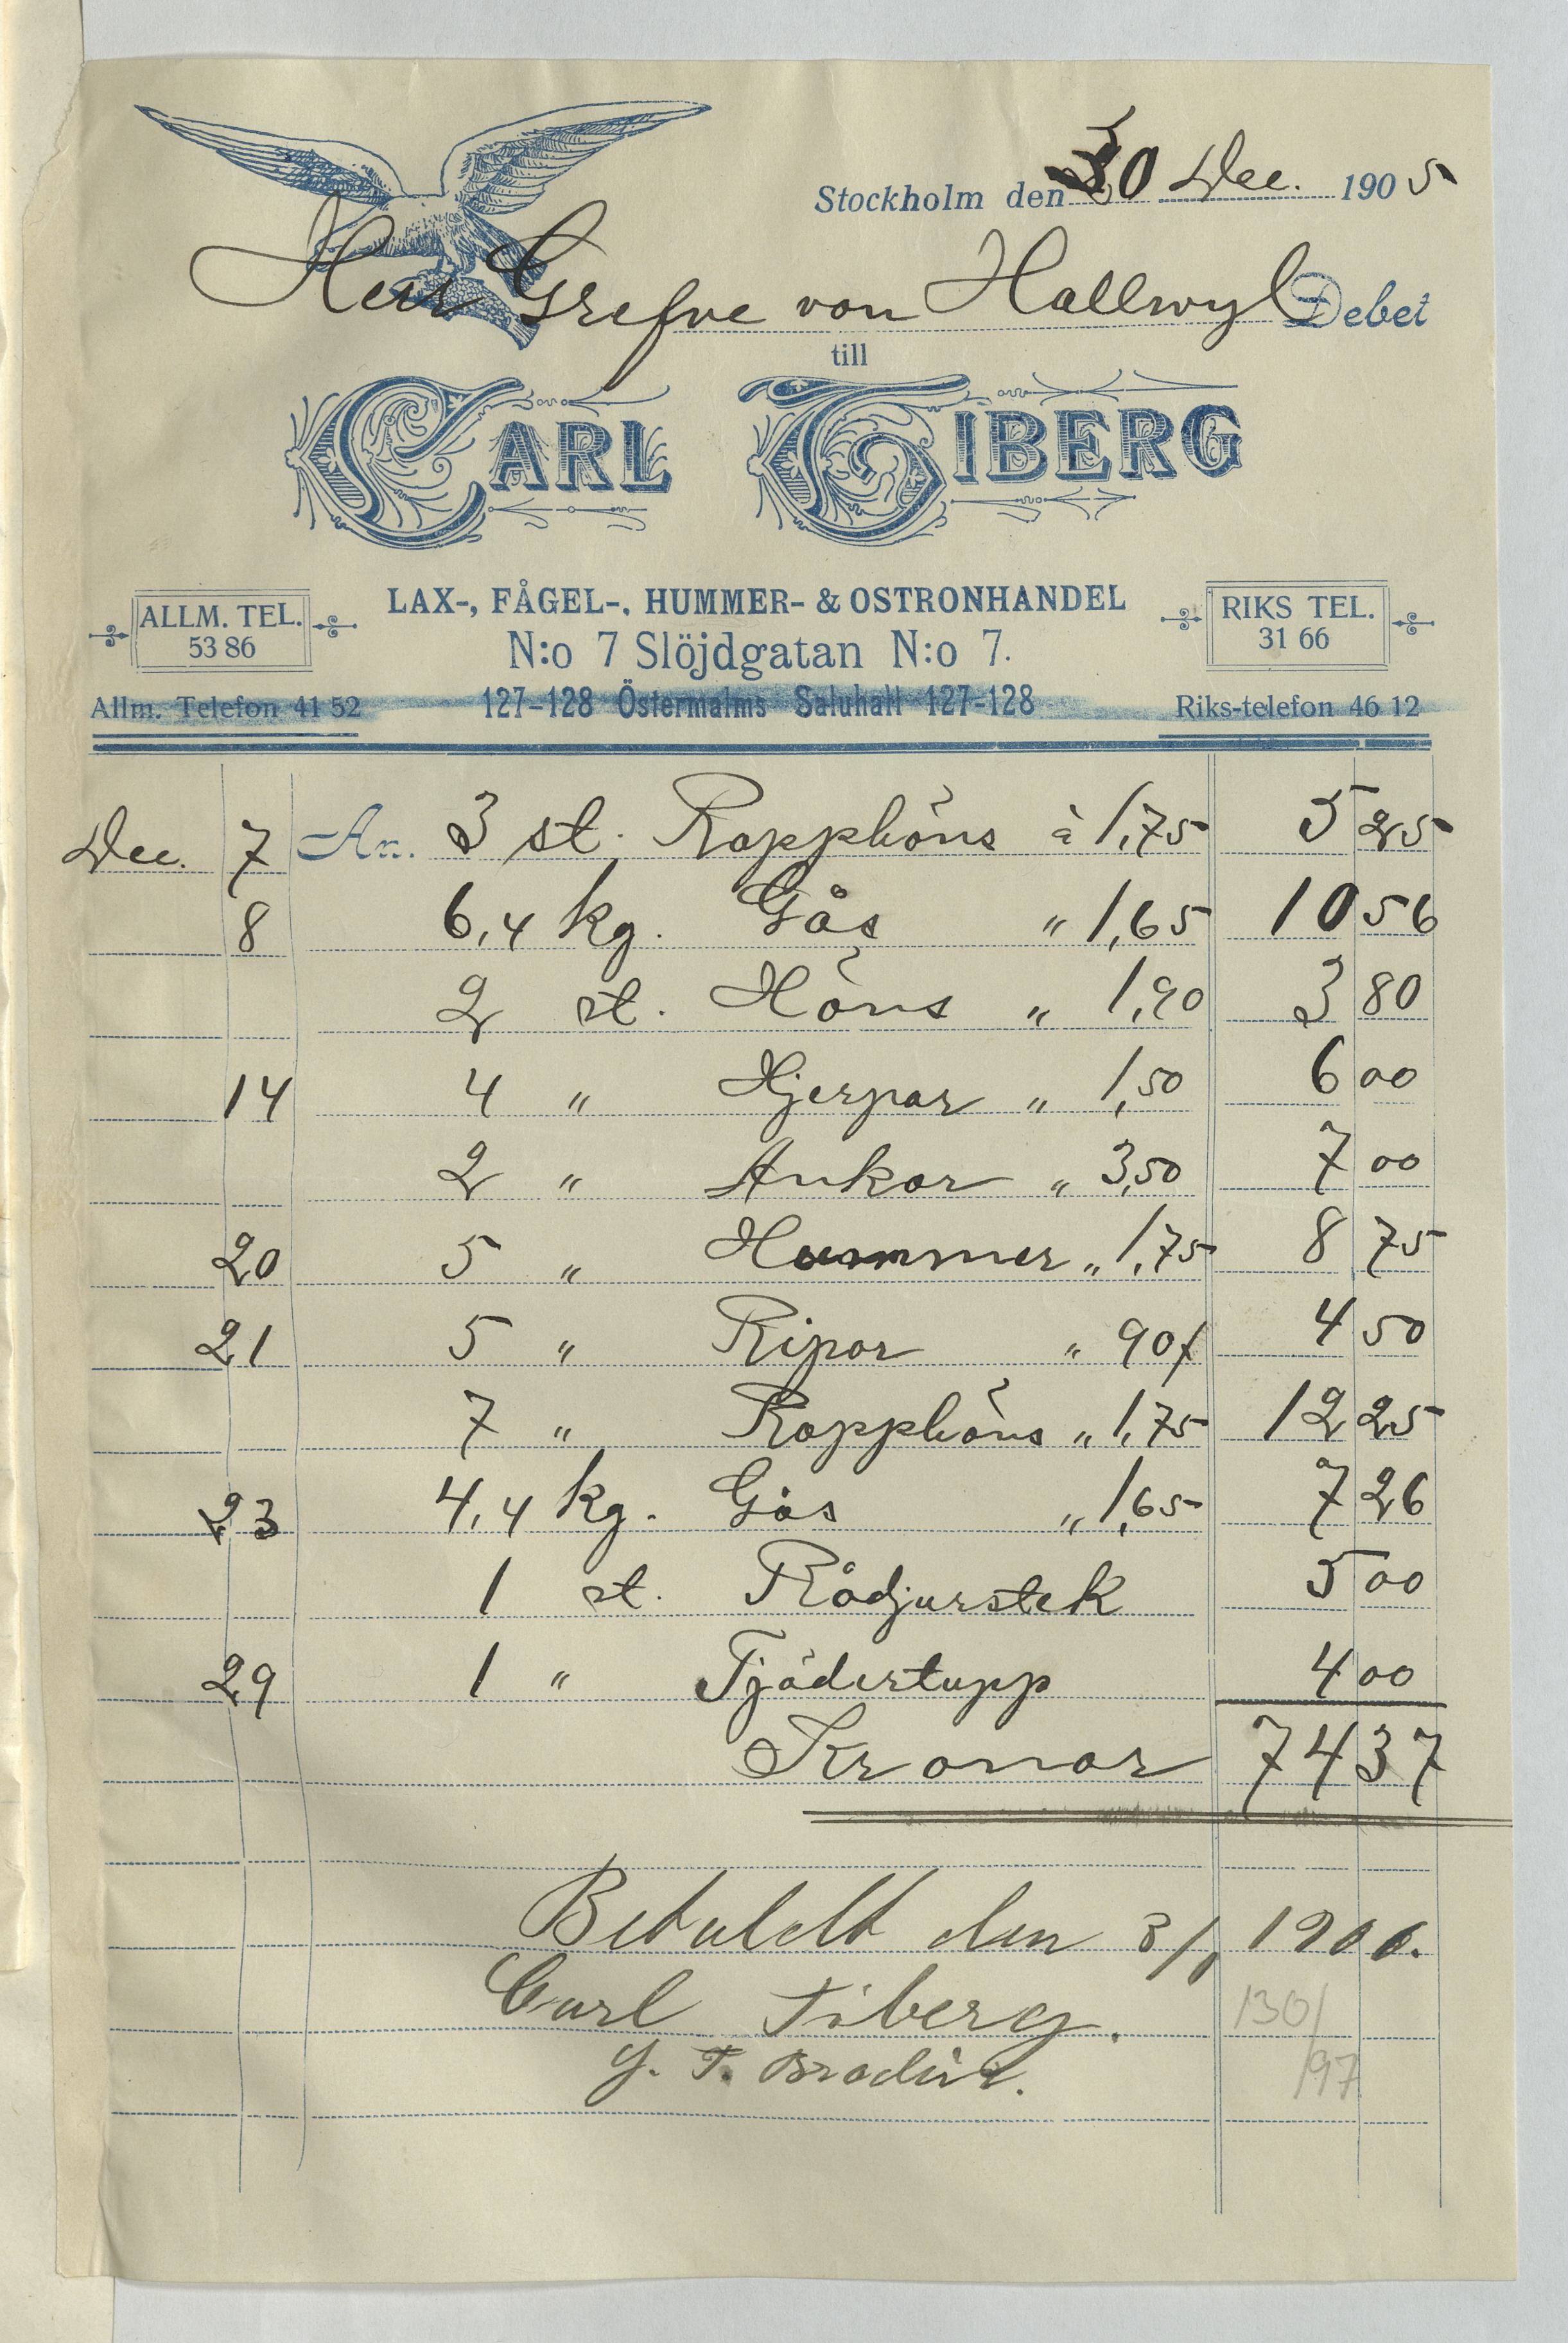 Stockholm den 30 Dec. 1905
Herr Grefve von Hallwyl Debet
till
CARL TIBERG
LAX-, FÅGEL-, HUMMER- & OSTRONHANDEL
ALLM. TEL. 53 86
N:o 7 Slöjdgatan N:o 7.
RIKS TEL. 31 66
Allm. Telefon 41 52 127-128 Östermalms Saluhall 127-128 Riks-telefon 46 12
Dec. 7 An. 3 st. Rapphöns à 1,75 5 25
8 6,4 kg. Gås " 1,65 10 56
2 st. Höns " 1,90 3 80
14 4 " Hjerpar " 1,50 6 00
2 " Ankor " 3,50 7 00
20 5 " Hummer " 1,75 8 75
21 5 " Ripor " 90 4 50
7 " Rapphöns " 1,75 12 25
23 4,4 kg. Gås " 1,65 7 26
1 st. Rådjurstek 5 00
29 1 " Tjädertupp 4 00
Kronor 74 37
Betaldt den 8/1 1906.
Carl Tiberg.
130/
/97